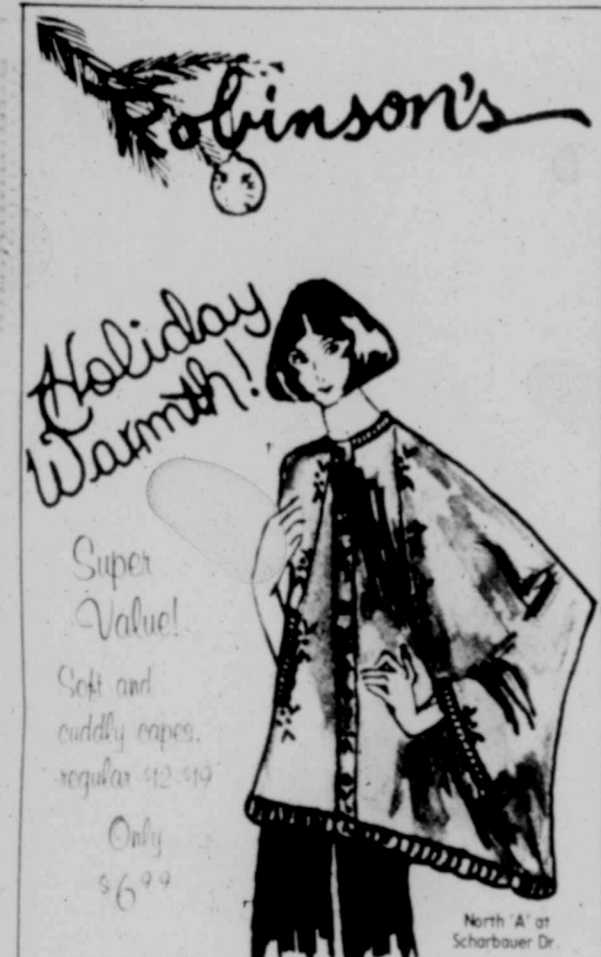 Robinson's
Holiday
Warmth!
Super
Value!
Soft and
cuddly capes,
regular $12-$19
Only
$6.99
North 'A' at
Scharbauer Dr.